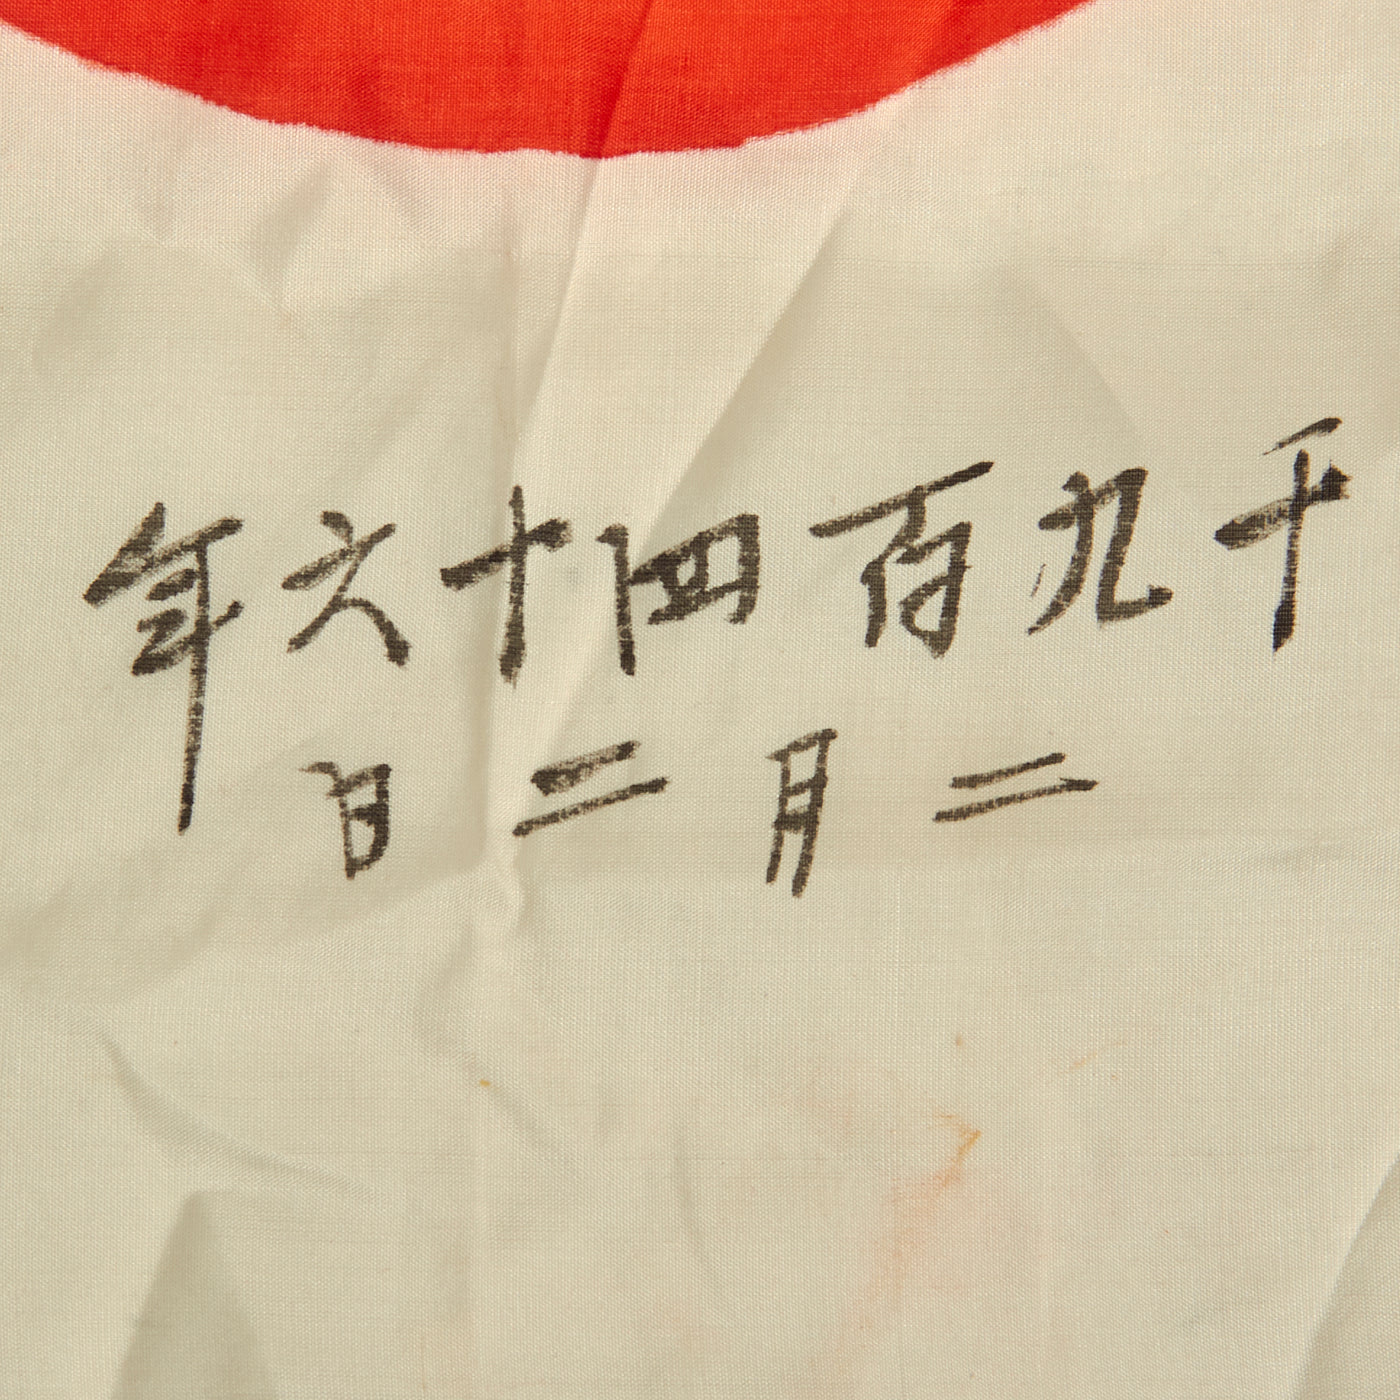 千九百四十六年
二月二日